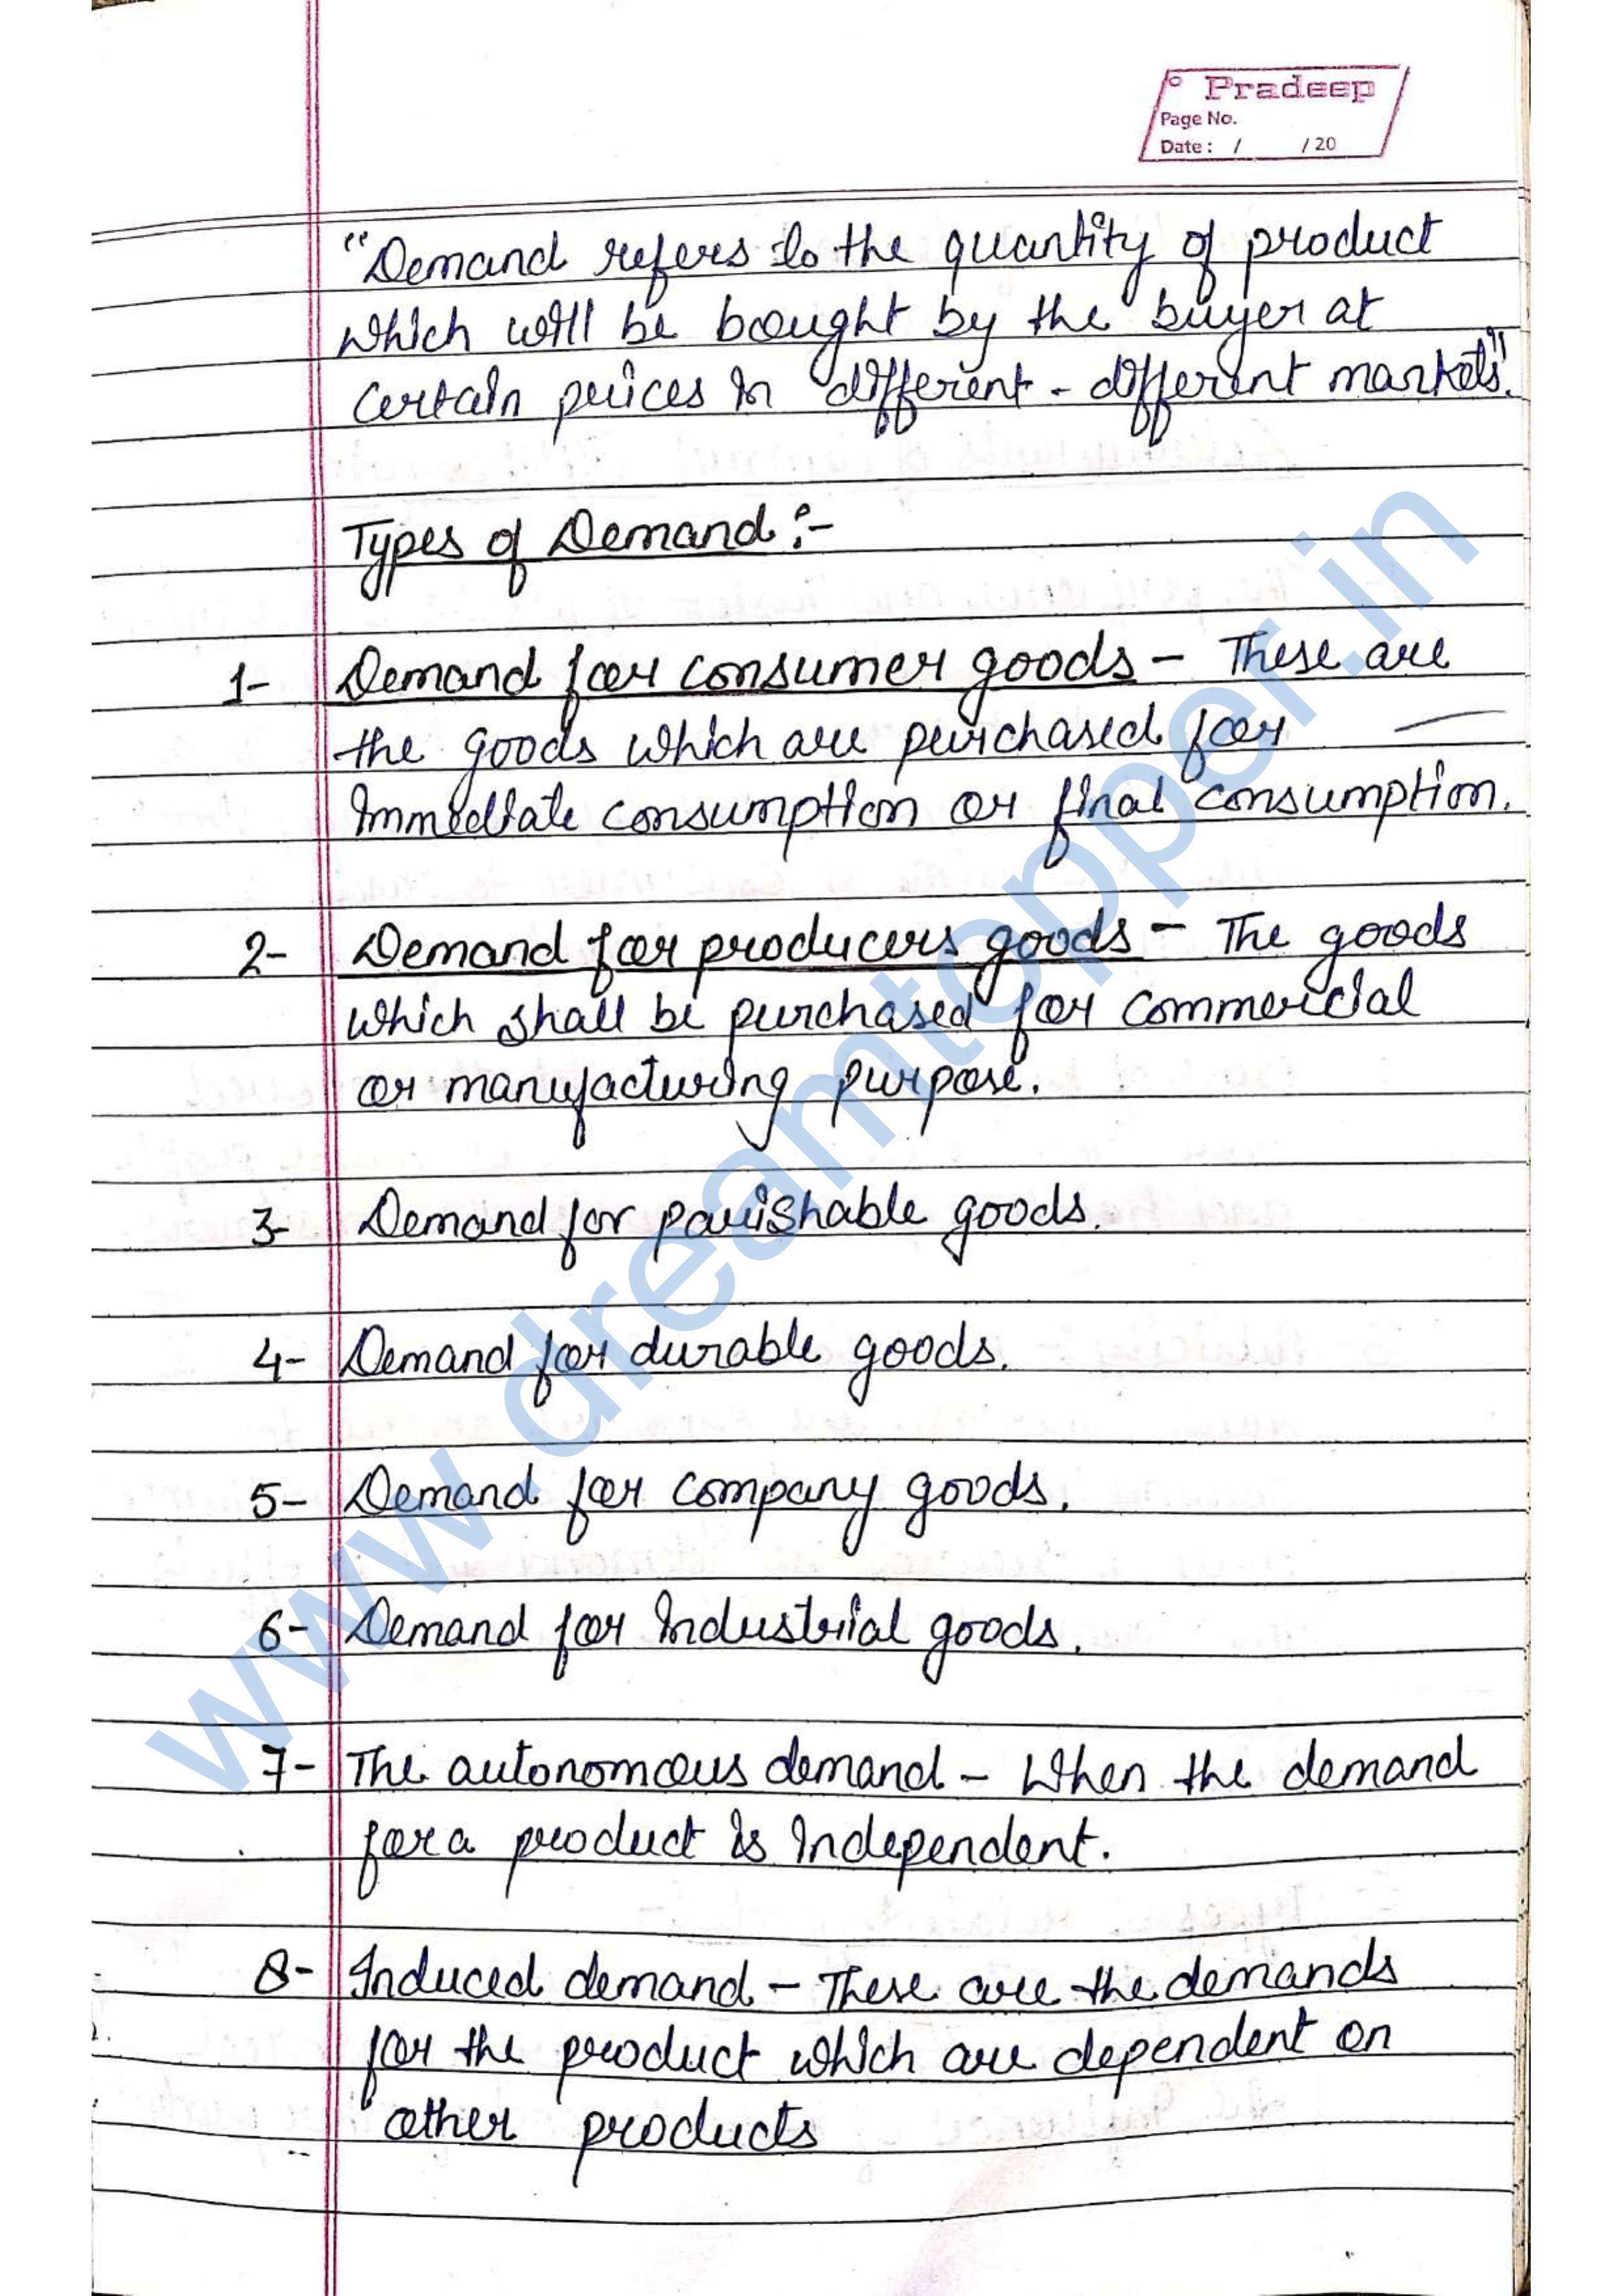 Pradeep
Page No.
Date : / /20
"Demand refers to the quantity of product
which will be bought by the buyer at
certain prices in different - different markets".
Types of Demand :-
1- Demand for consumer goods - These are
the goods which are purchased for
immediate consumption or final consumption.
2- Demand for producers goods - The goods
which shall be purchased for commercial
or manufacturing purpose.
3- Demand for parishable goods.
4- Demand for durable goods.
5- Demand for company goods.
6- Demand for industrial goods.
7- The autonomous demand - When the demand
for a product is independent.
8- Induced demand - These are the demands
for the product which are dependent on
other products
www.dreamtopper.in